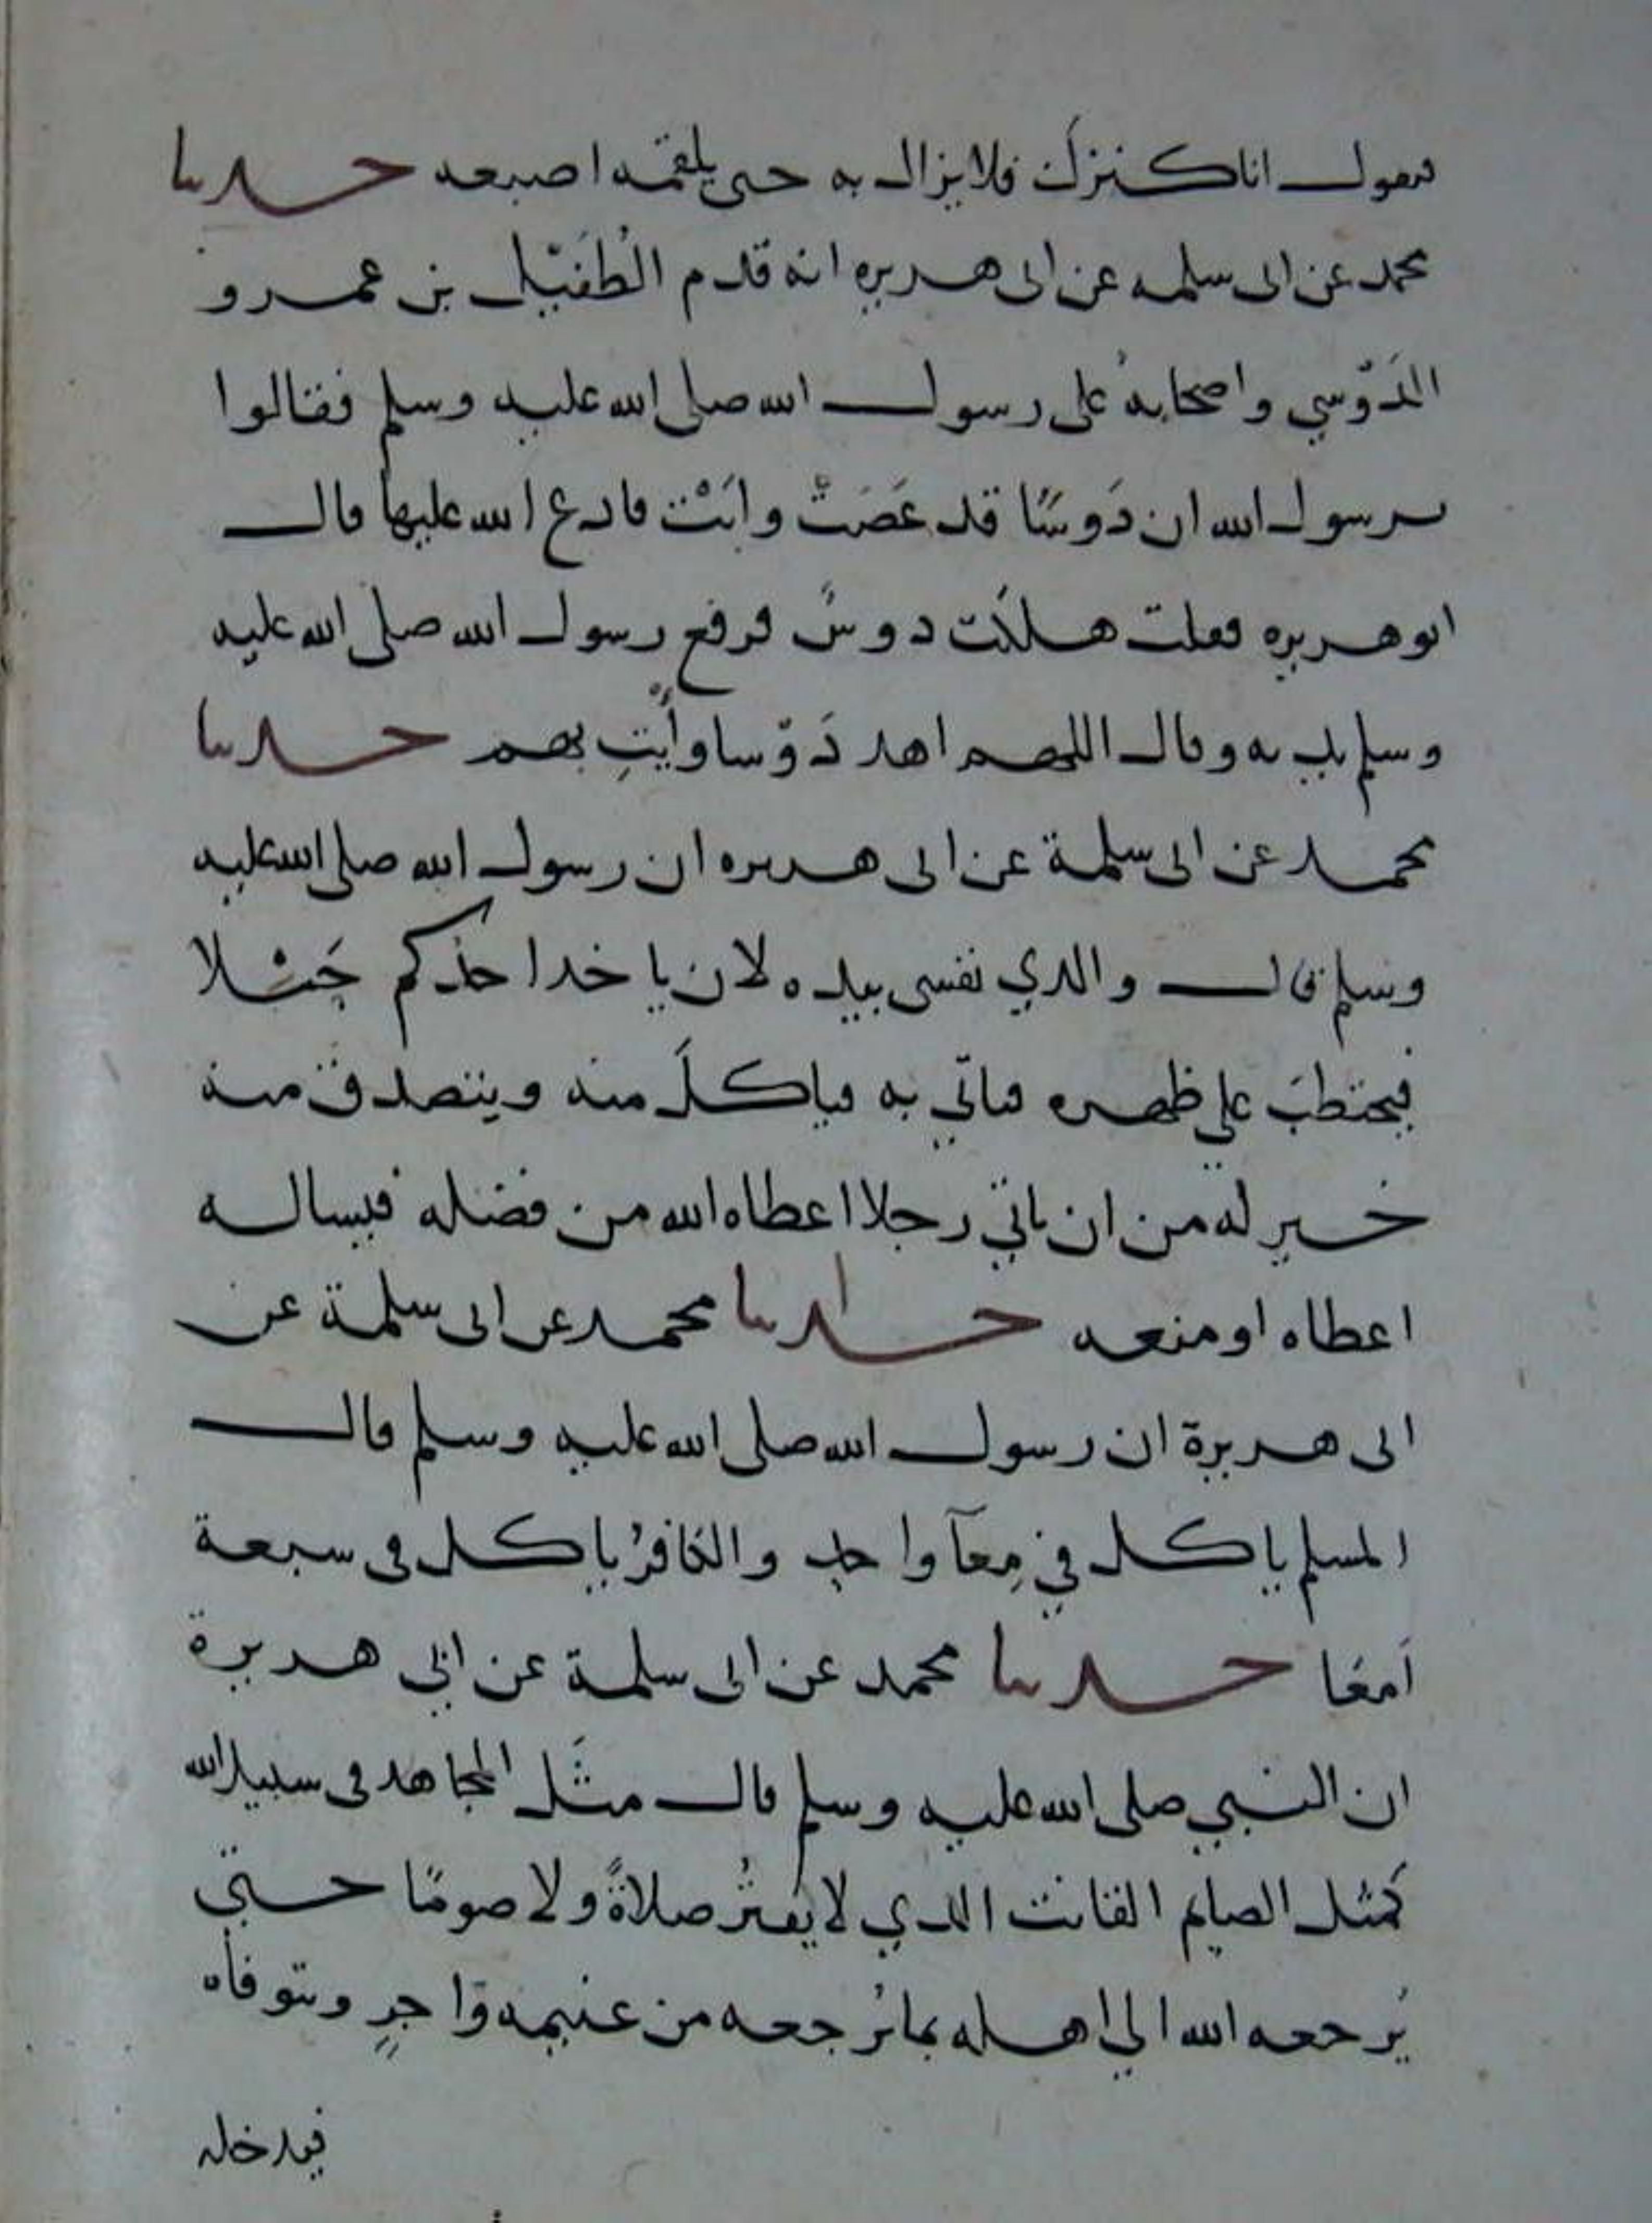 فيقول انا كنزك فلا يزال به حتى يلقمه اصبعه حدثنا
محمد عن ابى سلمه عن ابى هريره انه قدم الطُفَيْل بن عمرو
الدَوْسي واصحابهُ على رسول الله صلى الله عليه وسلم فقالوا
يرسول الله ان دَوسًا قد عَصَتْ وابَتْ فادع الله عليها قال
ابو هريره فقلت هلكت دوسٌ فرفع رسول الله صلى الله عليه
وسلم يديه وقال اللهم اهد دَوْسا وأْيتِ بهم حدثنا
محمد عن ابى سلمة عن ابى هريره ان رسول الله صلى الله عليه
وسلم قال والدي نفسى بيده لان ياخد احدكم حَبْلا
فيحتطبَ علي ظهره فياتي به فياكلَ منه ويتصدق منه
خير له من ان ياتي رجلا اعطاه الله من فضله فيساله
اعطاه او منعه حدثنا محمد عن ابى سلمة عن
ابى هريرة ان رسول الله صلى الله عليه وسلم قال
المسلم ياكل في مِعآ واحد والكافرُ ياكل فى سبعة
اَمعَا حدثنا محمد عن ابى سلمة عن ابي هريرة
ان النبي صلى الله عليه وسلم قال مثَل المجاهد فى سبيل الله
كمَثل الصايم القانت الدي لا يَفترُ صلاةً ولا صومًا حتي
يُرجعه الله الي اهله بما يُرجعه من غنيمه وَاجرٍ ويتوفاه
فيدخله